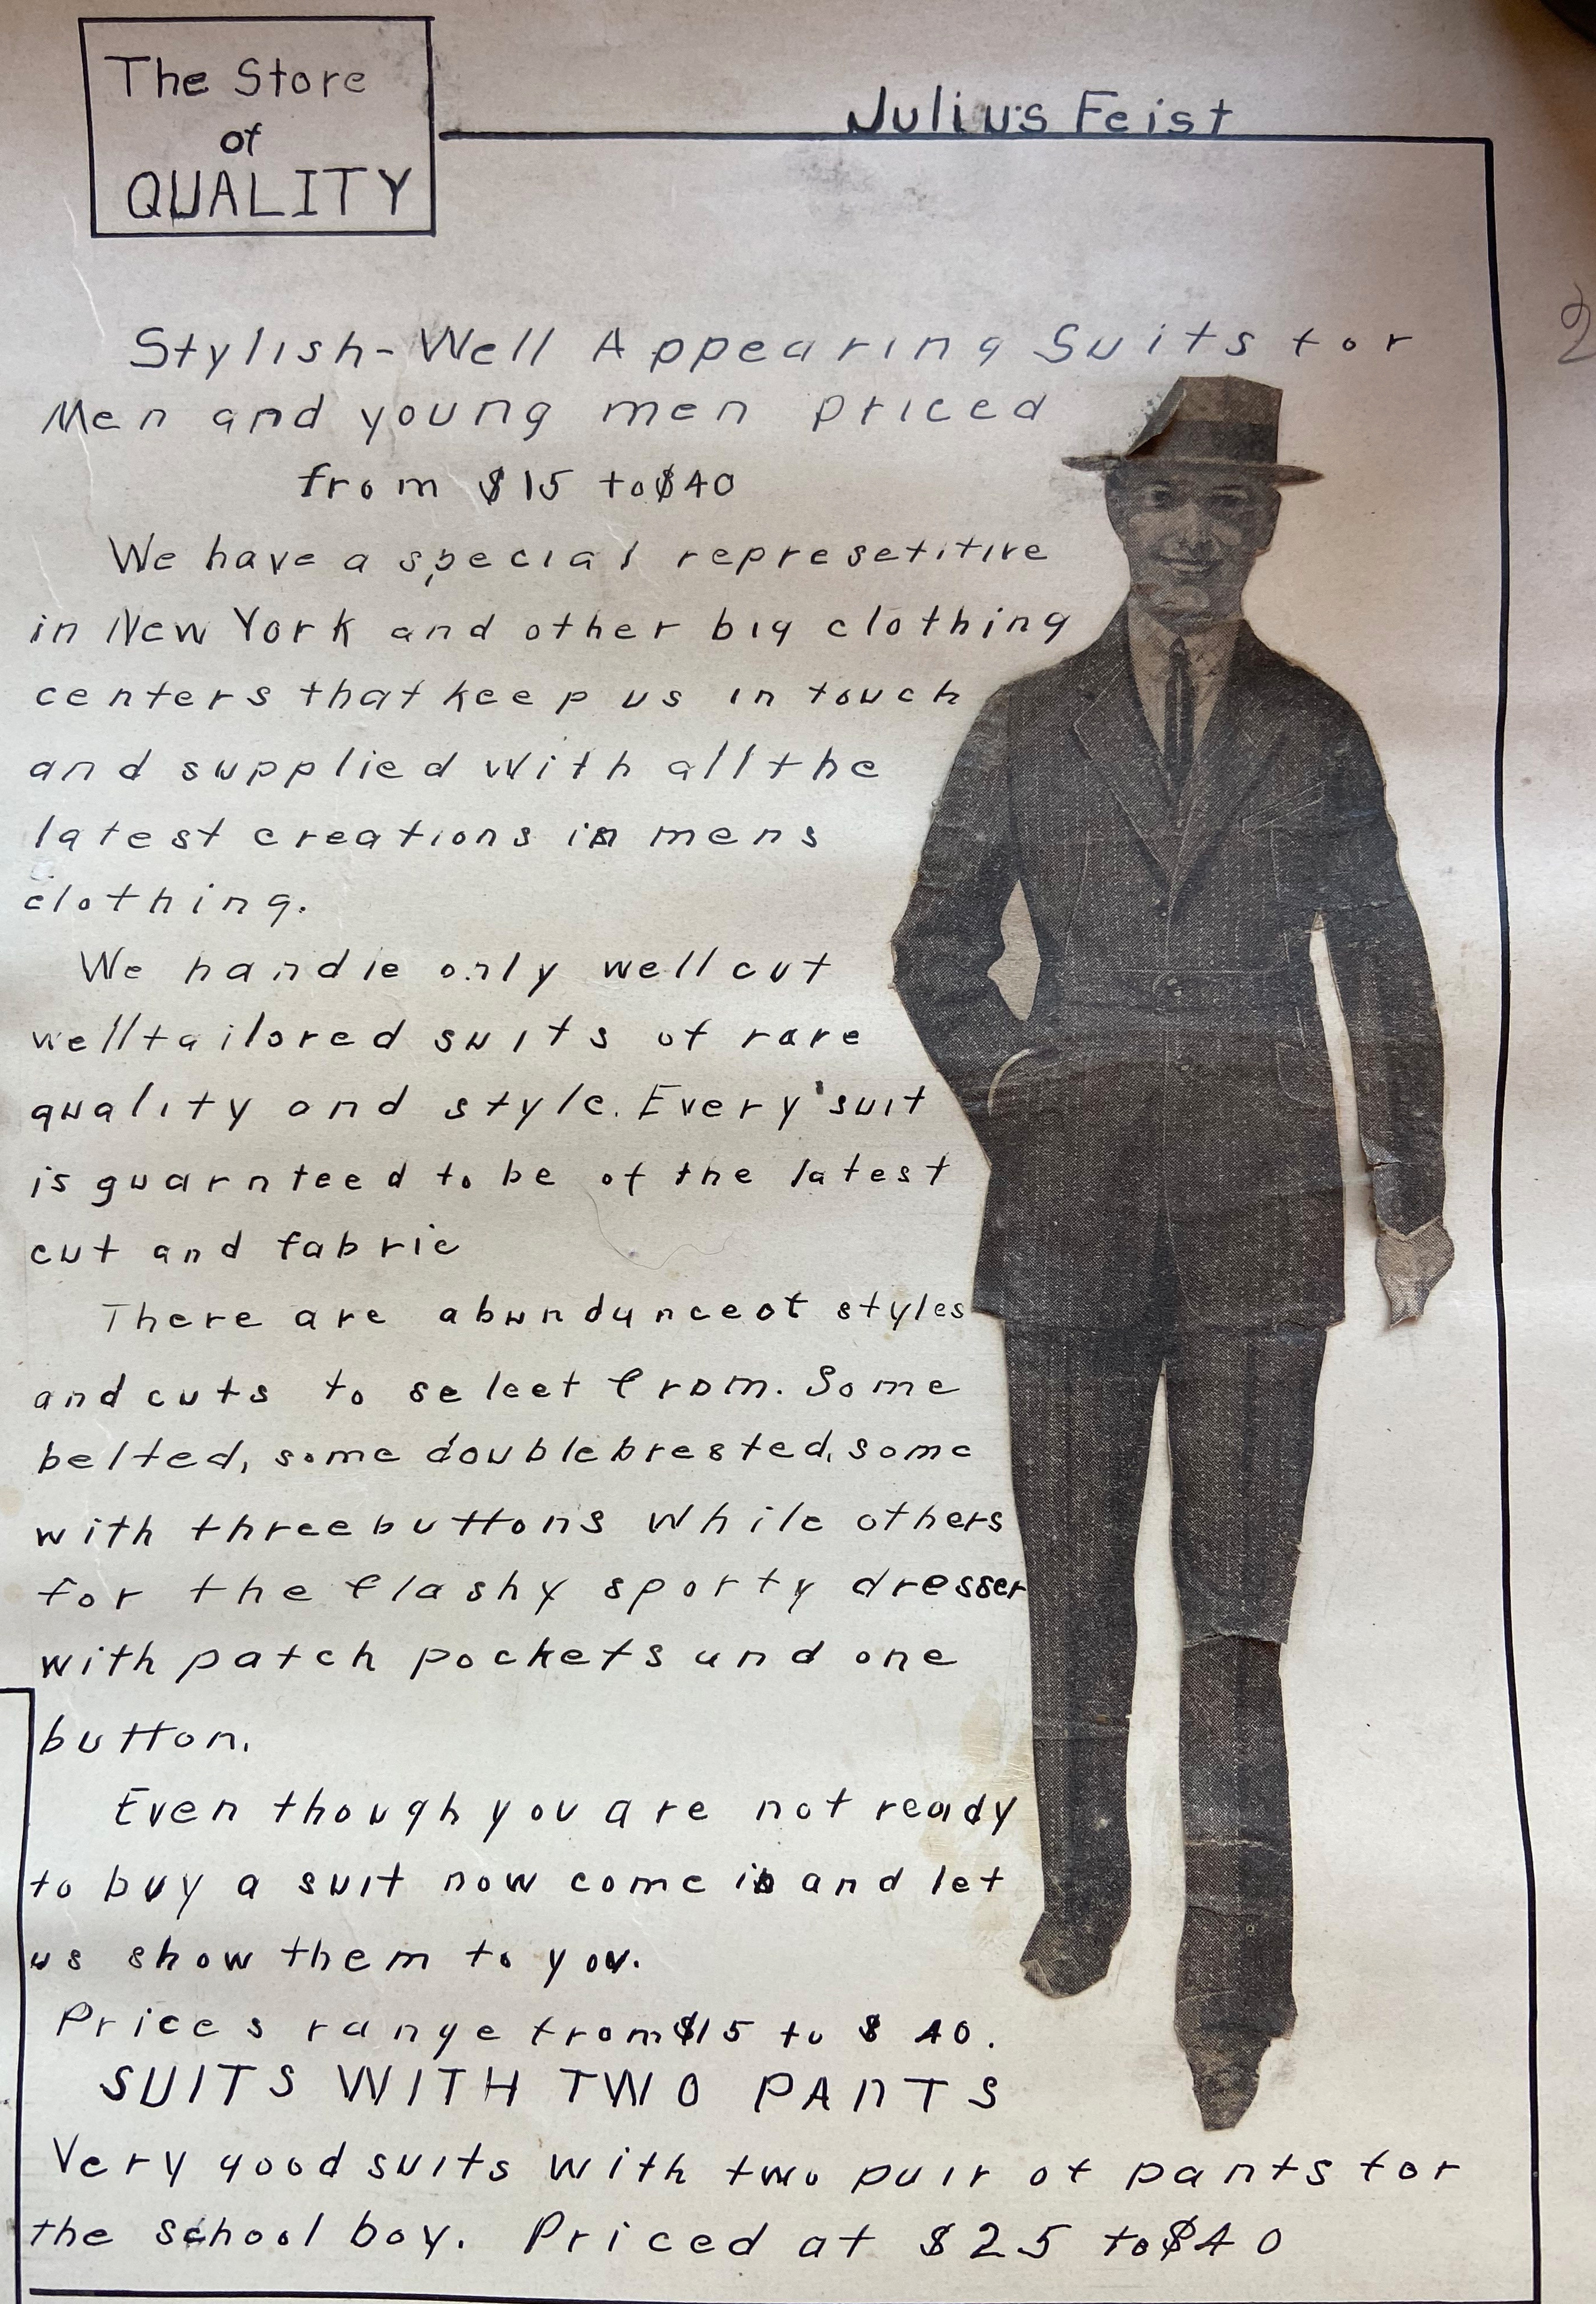 The Store
of
QUALITY
Julius Feist
2
Stylish-Well Appearing Suits for
Men and young men priced
from $15 to $40
We have a special represetitive
in New York and other big clothing
centers that keep us in touch
and supplied with all the
latest creations in mens
clothing.
We handle only well cut
well tailored suits of rare
quality and style. Every suit
is guarnteed to be of the latest
cut and fabric
There are abundance of styles
and cuts to select from. Some
belted, some double brested, some
with three buttons while others
for the flashy sporty dresser
with patch pockets and one
button.
Even though you are not ready
to buy a suit now come in and let
us show them to you.
Prices range from $15 to $40.
SUITS WITH TWO PANTS
Very good suits with two pair of pants for
the school boy. Priced at $25 to $40